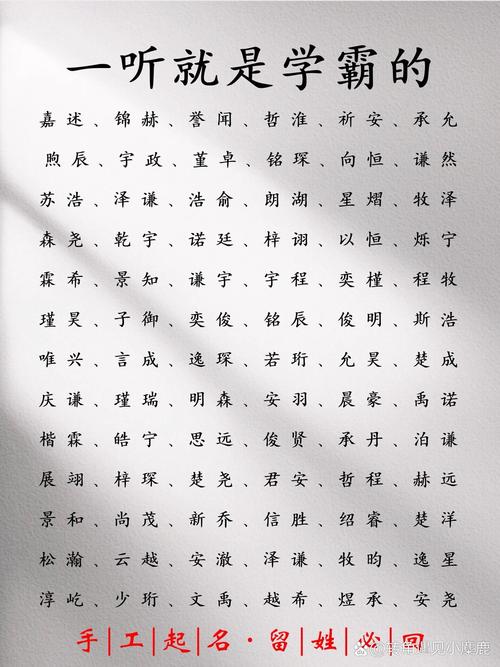 一听就是学霸的
嘉述、锦赫、誉闻、哲淮、祈安、承允
煦辰、宇政、堇卓、铭琛、向恒、谦然
苏浩、泽谦、浩俞、朗湖、星熠、牧泽
森尧、乾宇、诺廷、梓诩、以恒、烁宁
霖希、景知、谦宇、宇程、奕槿、程牧
瑾昊、子御、奕俊、铭辰、俊明、斯浩
唯兴、言成、逸琛、若珩、允昊、楚成
庆谦、瑾瑞、明森、安羽、晨豪、禹诺
楷霖、皓宁、思远、俊贤、承丹、泊谦
展翊、梓琛、楚尧、君安、哲程、赫远
景和、尚茂、新乔、信胜、绍睿、楚洋
松瀚、云越、安澈、泽谦、牧昀、逸星
淳屹、少珩、文禹、越希、煜承、安尧
手|工|起|名·留|姓|必|回
转角遇见小麋鹿